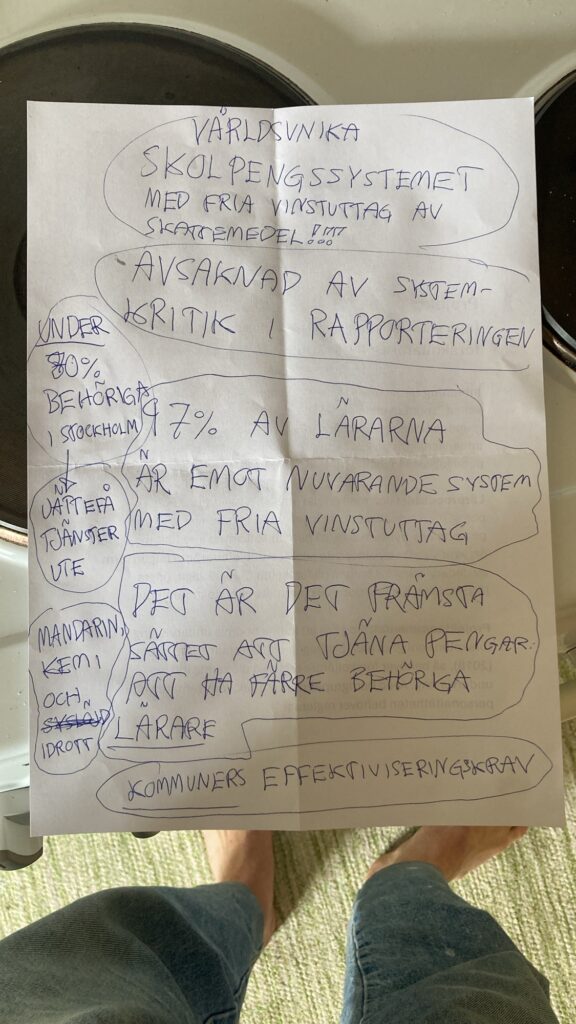 VÄRLDSUNIKA
SKOLPENGSSYSTEMET
MED FRIA VINSTUTTAG AV
SKATTEMEDEL!!!!
AVSAKNAD AV SYSTEM-
KRITIK I RAPPORTERINGEN
UNDER
80%
BEHÖRIGA
I STOCKHOLM
JÄTTEFÅ
TJÄNSTER
UTE
97% AV LÄRARNA
ÄR EMOT NUVARANDE SYSTEM
MED FRIA VINSTUTTAG
MANDARIN,
KEMI
OCH
SYSLÖJD
IDROTT
DET ÄR DET FRÄMSTA
SÄTTET ATT TJÄNA PENGAR:
ATT HA FÄRRE BEHÖRIGA
LÄRARE
KOMMUNERS EFFEKTIVISERINGSKRAV